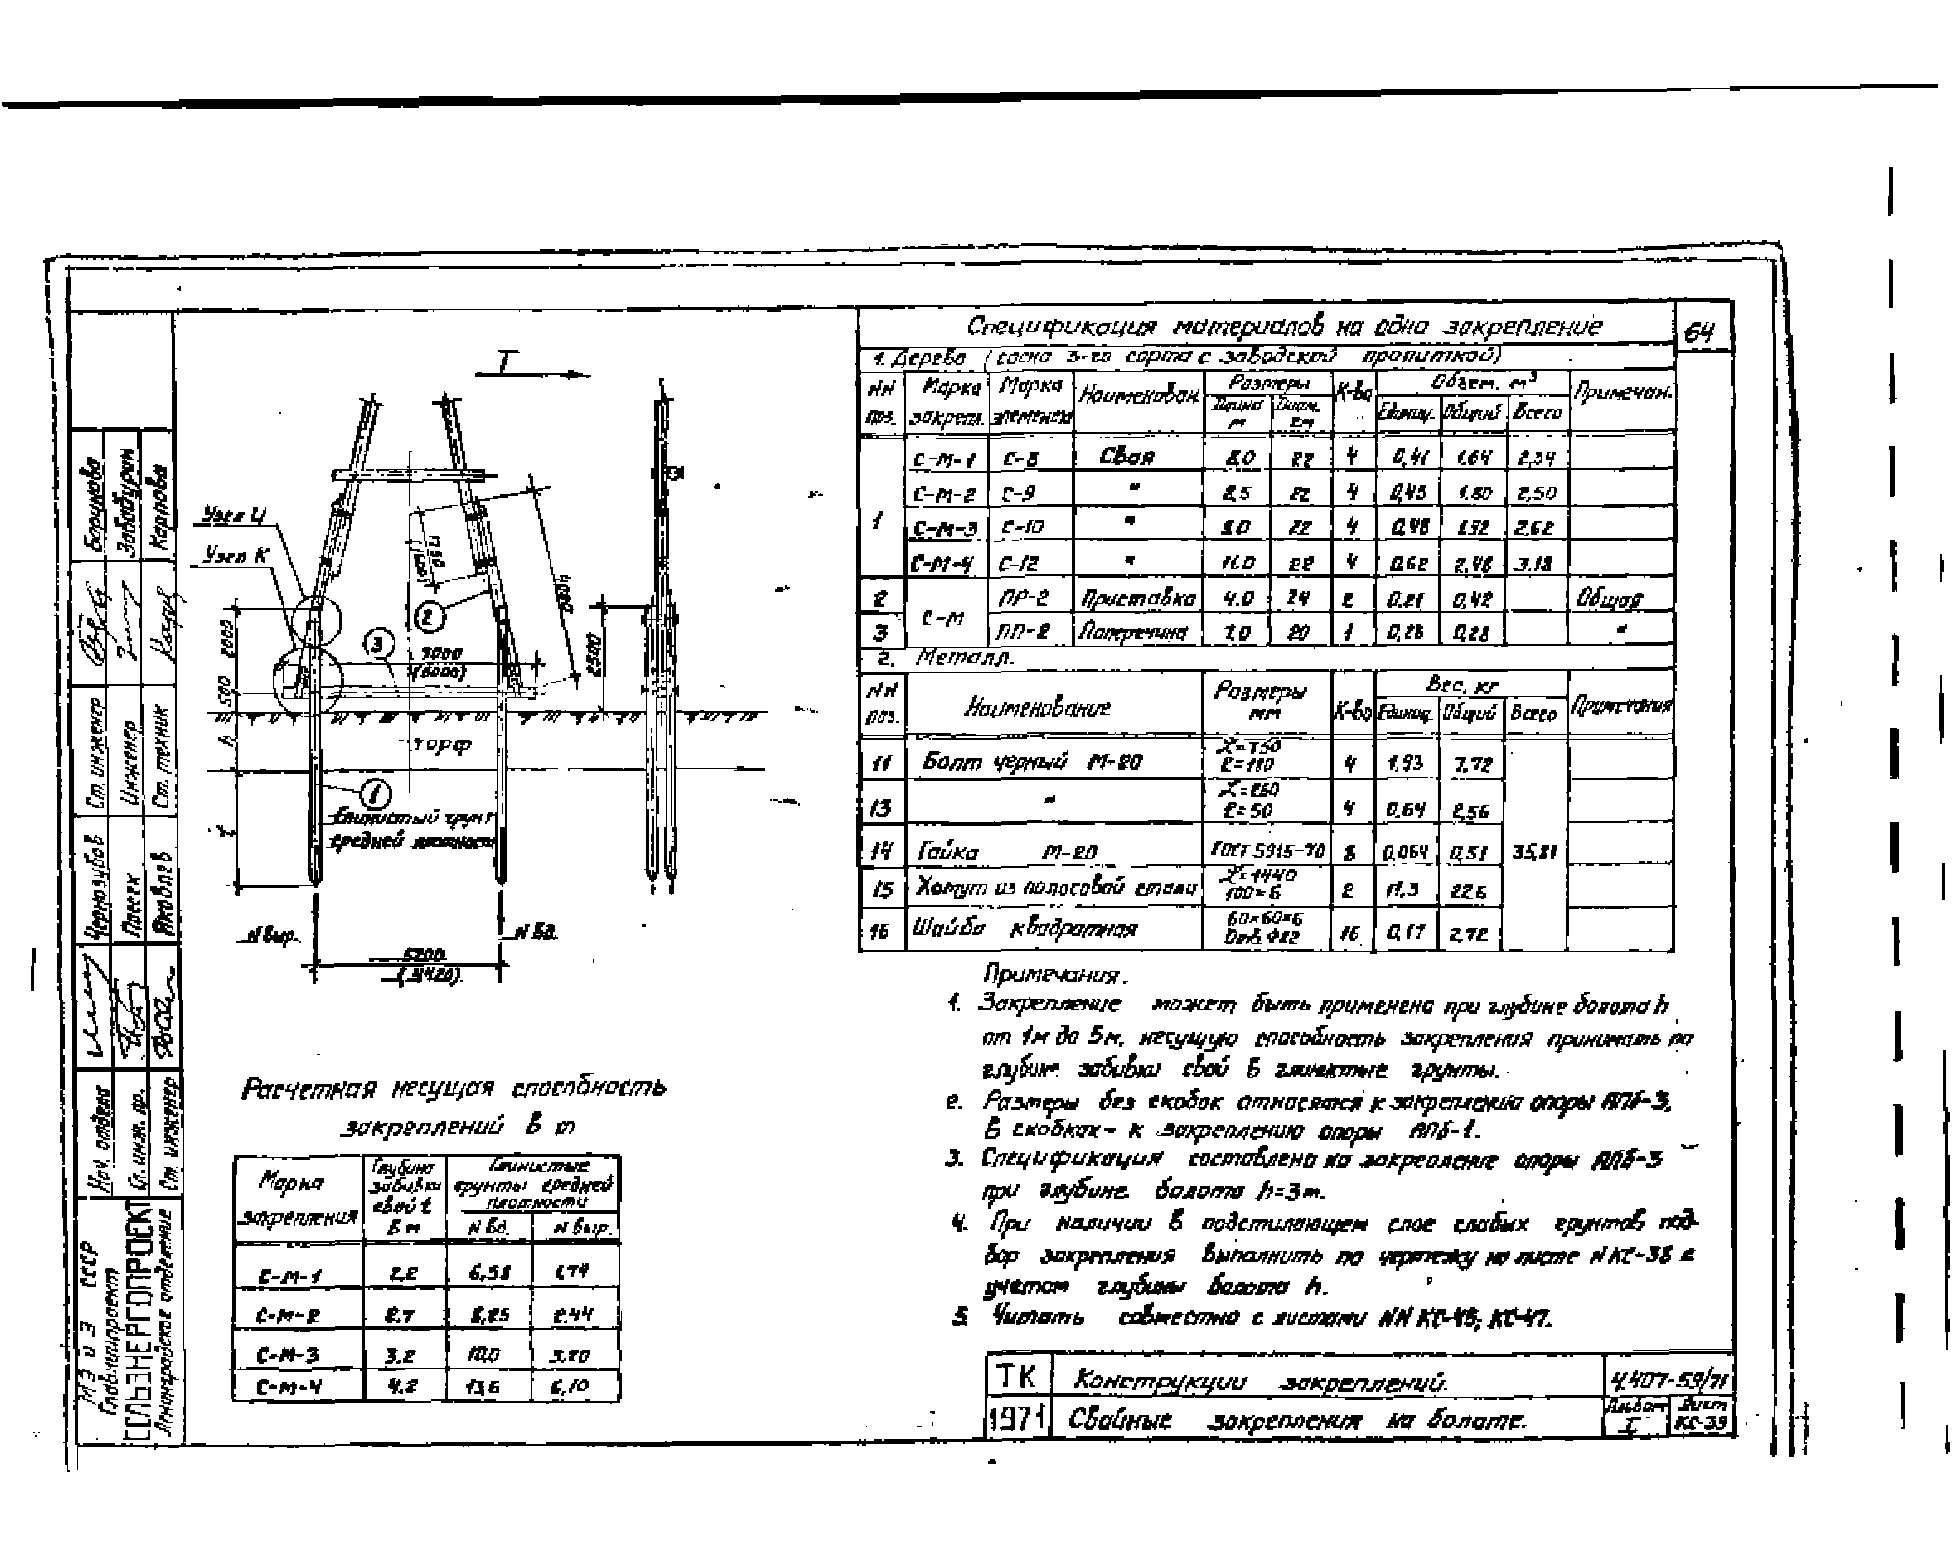 Спецификация материалов на одно закрепление
64
1. Дерево (сосна 3-го сорта с заводской пропиткой)
NN поз. Марка закрепл. Марка элемента Наименован. Размеры К-во Объем. м³ Примечан.
Длина м Диам. см Единиц. Общий Всего
1 С-М-1 С-8 Свая 8.0 22 4 0,41 1.64 2,34
С-М-2 С-9 " 8,5 22 4 0,45 1.80 2,50
С-М-3 С-10 " 22 4 0,48 1.92 2,62
С-М-4 С-12 " 11.0 22 4 0.62 2.48 3.18
2 С-М ПР-2 Приставка 4.0 24 2 0.21 0,42 Общая
3 ПП-2 Поперечина 7.0 20 1 0,28 0,28 "
2. Металл.
NN поз. Наименование Размеры мм К-во Вес, кг Примечания
Единиц. Общий Всего
11 Болт черный М-20 L=750 l=110 4 1,93 7,72
13 " L=260 l=50 4 0,64 2,56
14 Гайка М-20 ГОСТ 5915-70 8 0,064 0,51 35,81
15 Хомут из полосовой стали L=1440 100×6 2 11,3 22.6
16 Шайба квадратная 60×60×6 Отв. Ф22 16 0,17 2,72
Т
Узел И
Узел К
2000
500
h
t
2
3
7000
(5000)
2500
торф
1
Глинистый грунт
средней плотности
N выр.
N вд.
5200
(3420)
Расчетная несущая способность
закреплений в т
Марка закрепления Глубина забивки свой t в м Глинистые грунты средней плотности
N вд. N выр.
С-М-1 2,2 6,58 1,74
С-М-2 2,7 8,25 2.44
С-М-3 3,2 10,0 3,20
С-М-4 4,2 13,6 5,10
Примечания.
1. Закрепление может быть применено при глубине болота h
от 1м до 5м, несущую способность закрепления принимать по
глубине забивки свой в глинистые грунты.
2. Размеры без скобок относятся к закреплению опоры АПБ-3,
в скобках - к закреплению опоры АПБ-1.
3. Спецификация составлена на закрепление опоры АПБ-3
при глубине болота h=3м.
4. При наличии в подстилающем слое слабых грунтов под-
бор закрепления выполнить по чертежу на листе N КС-38 с
учетом глубины болота h.
5. Читать совместно с листами NN КС-45; КС-47.
ТК Конструкции закреплений. 4.407-59/71
1971 Свайные закрепления на болоте. Альбом I Лист КС-39
МЭ и Э СССР
Главсельпроект
СЕЛЬЭНЕРГОПРОЕКТ
Ленинградское отделение
Нач. отдела
Гл. инж. пр.
Ст. инженер
Чернозубов
Яковлев
Ст. инженер
Инженер
Ст. техник
Забабурин
Карпова